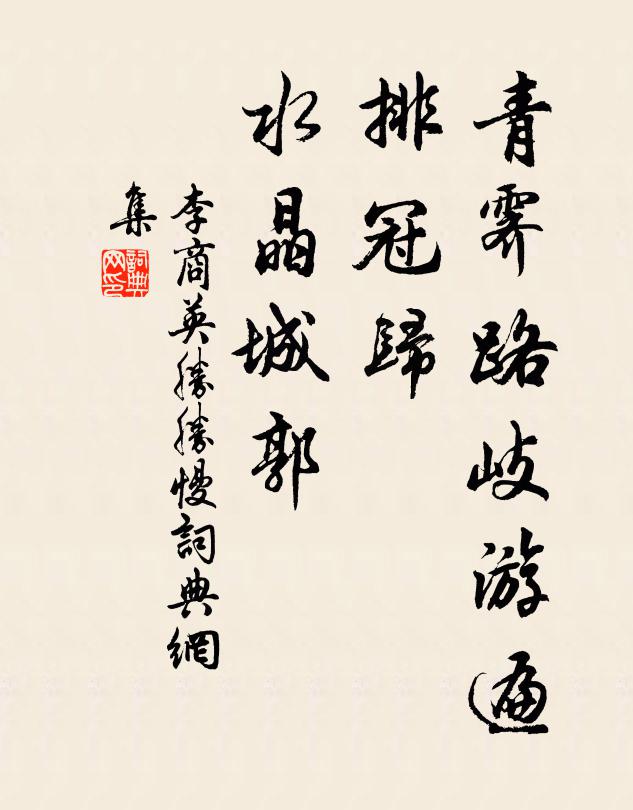 青霽路岐游遍
排冠歸
水晶城郭
李商英勝勝慢詞典網
集
詞典
网印